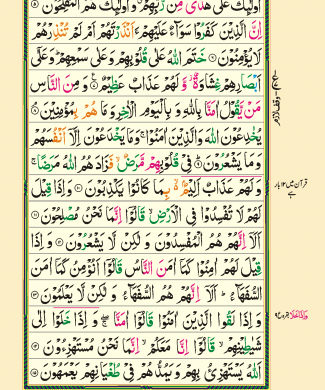 اُولٰٓئِكَ عَلٰى هُدًى مِّنْ رَّبِّهِمْ وَاُولٰٓئِكَ هُمُ الْمُفْلِحُوْنَ ۝۵
اِنَّ الَّذِيْنَ كَفَرُوْا سَوَآءٌ عَلَيْهِمْ ءَاَنْذَرْتَهُمْ اَمْ لَمْ تُنْذِرْهُمْ
لَا يُؤْمِنُوْنَ ۝۶ خَتَمَ اللّٰهُ عَلٰى قُلُوْبِهِمْ وَعَلٰى سَمْعِهِمْ ؕ وَعَلٰٓى
اَبْصَارِهِمْ غِشَاوَةٌ ؗ وَّلَهُمْ عَذَابٌ عَظِيْمٌ ۝۷ وَمِنَ النَّاسِ
مَنْ يَّقُوْلُ اٰمَنَّا بِاللّٰهِ وَبِالْيَوْمِ الْاٰخِرِ وَمَا هُمْ بِمُؤْمِنِيْنَ ۝۸
يُخٰدِعُوْنَ اللّٰهَ وَالَّذِيْنَ اٰمَنُوْا ۚ وَمَا يَخْدَعُوْنَ اِلَّاۤ اَنْفُسَهُمْ
وَمَا يَشْعُرُوْنَ ۝۹ فِيْ قُلُوْبِهِمْ مَّرَضٌ ۙ فَزَادَهُمُ اللّٰهُ مَرَضًا ۚ
وَلَهُمْ عَذَابٌ اَلِيْمٌۢ ۙ بِمَا كَانُوْا يَكْذِبُوْنَ ۝۱۰ وَاِذَا قِيْلَ
لَهُمْ لَا تُفْسِدُوْا فِي الْاَرْضِ ۙ قَالُوْۤا اِنَّمَا نَحْنُ مُصْلِحُوْنَ ۝۱۱
اَلَاۤ اِنَّهُمْ هُمُ الْمُفْسِدُوْنَ وَلٰكِنْ لَّا يَشْعُرُوْنَ ۝۱۲ وَاِذَا
قِيْلَ لَهُمْ اٰمِنُوْا كَمَاۤ اٰمَنَ النَّاسُ قَالُوْۤا اَنُؤْمِنُ كَمَاۤ اٰمَنَ
السُّفَهَآءُ ؕ اَلَاۤ اِنَّهُمْ هُمُ السُّفَهَآءُ وَلٰكِنْ لَّا يَعْلَمُوْنَ ۝۱۳
وَاِذَا لَقُوا الَّذِيْنَ اٰمَنُوْا قَالُوْۤا اٰمَنَّا ۖۚ وَاِذَا خَلَوْا اِلٰى
شَيٰطِيْنِهِمْ ۙ قَالُوْۤا اِنَّا مَعَكُمْ ۙ اِنَّمَا نَحْنُ مُسْتَهْزِءُوْنَ ۝۱۴
اَللّٰهُ يَسْتَهْزِئُ بِهِمْ وَيَمُدُّهُمْ فِيْ طُغْيَانِهِمْ يَعْمَهُوْنَ ۝۱۵